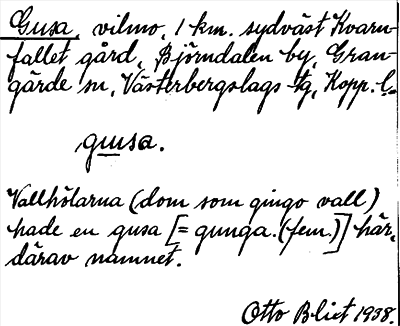 Gusa, vilmo, 1 km. sydväst Kvarn-
fallet gård, Björndalen by, Gran-
gärde sn, Västerbergslags tg, Kopp. l.
gusa.
Vallhölarna (dom som gingo vall)
hade en gusa [= gunga. (fem.)] här,
därav namnet.
Otto Blixt 1938.